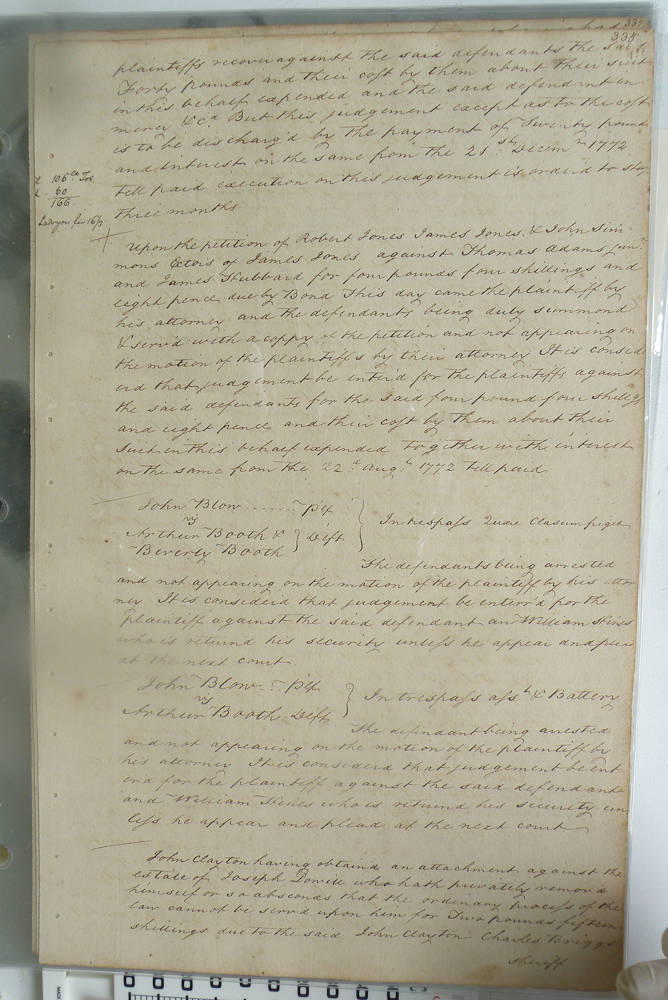 335
plaintiffs recover against the said defendants the said
Forty pounds and their cost by them about their suit
in this behalf expended and the said defendant in
mercy &c.a But this judgement except as to the cost
is to be discharg'd by the payment of Twenty pounds
and interest on the same from the 21st Decem.r 1772
till paid execution on this judgement is order'd to stay
three months
106
60
166
Upon the petition of Robert Jones James Jones & John Sim-
mons Extors of James Jones against Thomas Adams jun.r
and James Hubbard for four pounds four shillings and
eight pence due by Bond This day came the plaintiff by
his attorney and the defendants being duly summond
& serv'd with a coppy of the petition and not appearing on
the motion of the plaintiffs by their attorney It is consid
erd that judgement be enter'd for the plaintiffs against
the said defendants for the said four pound four shillgs
and eight pence and their cost by them about their
suit in this behalf expended together with interest
on the same from the 22d Augt 1772 till paid
John Blow ...... Plf
vs
Arthur Booth &
Beverly Booth } Deft } In trespass Quare Clasum
The defendants being arrested
and not appearing on the motion of the plaintiff by his attor
ney It is considerd that judgement be enterr'd for the
plaintiff against the said defendant an William Hines
who is returnd his security unless he appear and plea
at the next court
John Blow ... Plf
vs
Arthur Booth Deft } In trespass asst & Battery
The defendant being arrested
and not appearing on the motion of the plaintiff by
his attorney It is considerd that judgement be ent
er'd for the plaintiff against the said defendant
and William Hines who is returnd his security un
less he appear and plead at the next court
John Clayton having obtain'd an attachment against the
estate of Joseph who hath privately remov'd
himself or so absconds that the ordinary Process of the
law cannot be serv'd upon him for Two pounds fifteen
shillings due to the said John Clayton Charles Briggs
sheriff